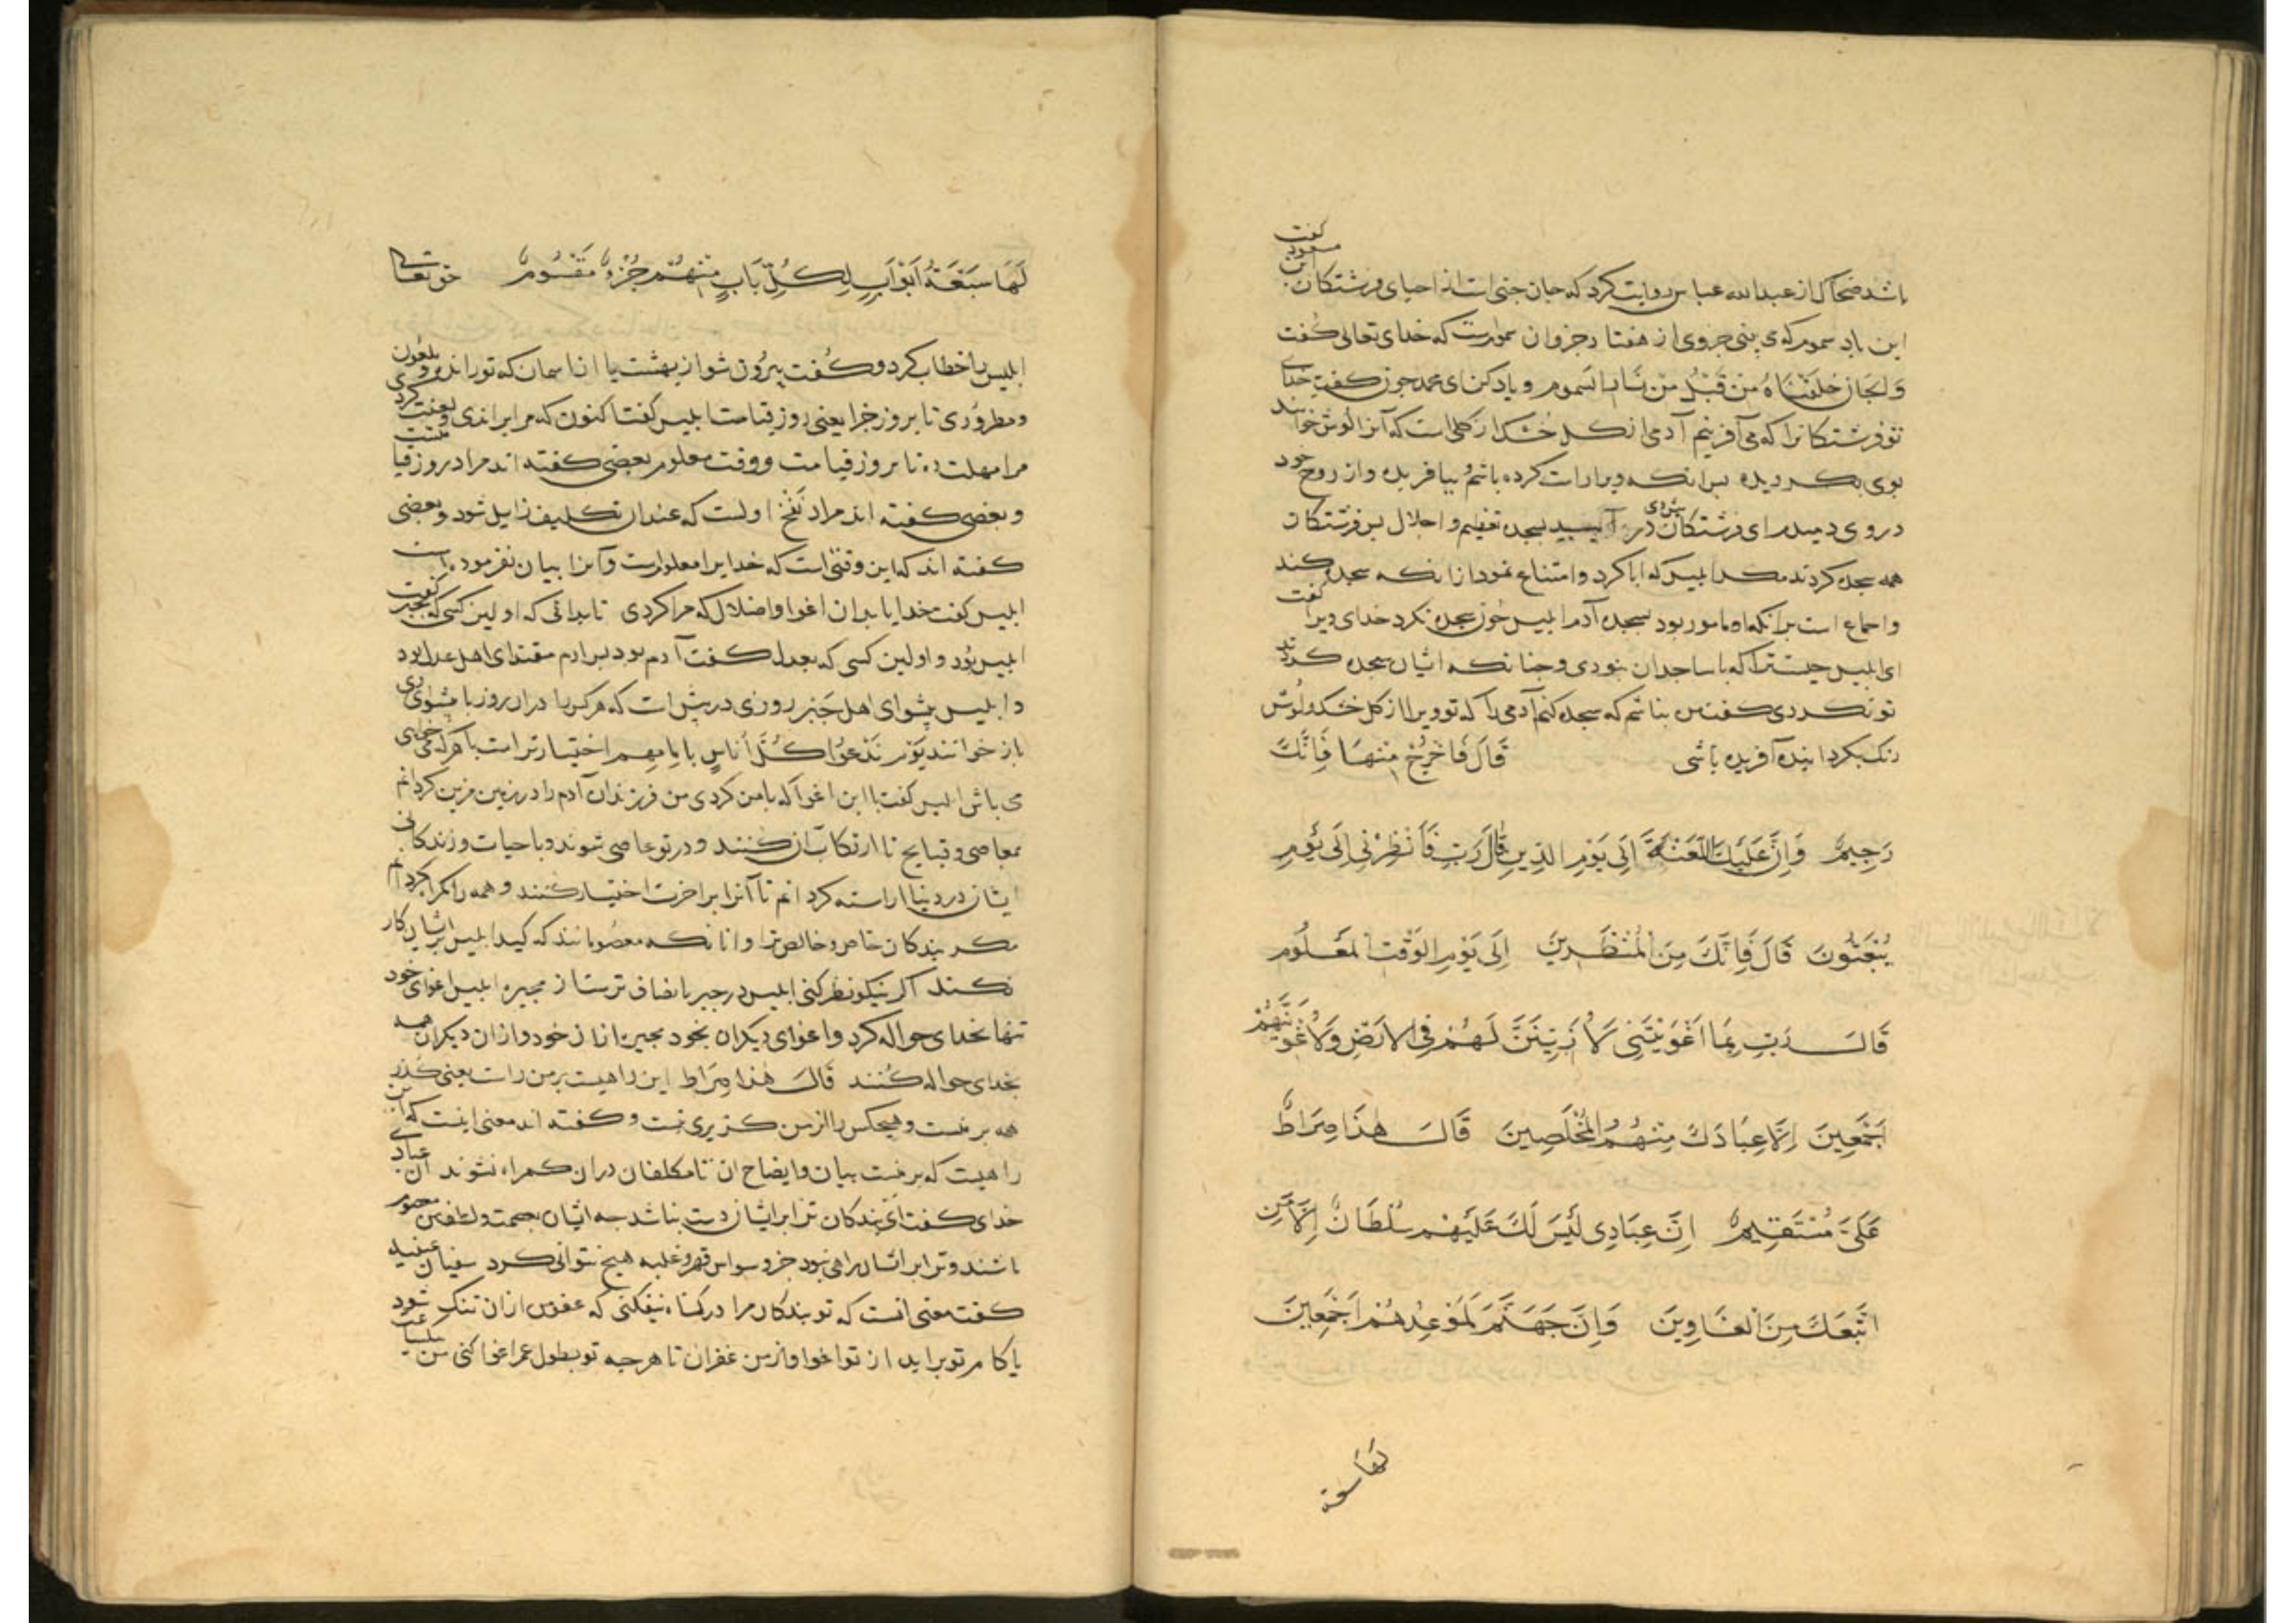 باشد ضحاک از عبدالله عباس روایت کرد که جان جنی است از احیای فرشتکان ابن مسعود کفت
این باد سموم که می بینی جزوی از هفتاد جزو ان سمومست که خدای تعالی کفت
وَالجَانَّ خَلَقْنَاهُ مِنْ قَبْلُ مِنْ نَارِ السَّموم و یاد کن ای محمد چون کفت خدای
تو فرشتکانرا که می آفرینم آدمی از کل خشک از کلی است که آنرا لوش خوانند
بوی بکردیده پس انکه ویرا راست کرده باشم بیافریده و از روح خود
در وی دمیده ای فرشتکان در پیش وی آیید بسجده تعظیم و اجلال پس فرشتکان
همه سجده کردند مکر ابلیس که ابا کرد و امتناع نمود از انکه سجده کند
و اجماع است بر انکه او مامور بود بسجده آدم ابلیس چون سجده نکرد خدای ویرا کفت
ای ابلیس چیست ترا که با ساجدان نبودی و چنانکه ایشان سجده کردند
تو نکردی کفت من نباشم که سجده کنم آدمی را که تو ویرا از کل خشک و لوش
رنک بکردانیده آفریده باشی قَالَ فَاخْرُجْ مِنْهَا فَاِنَّكَ
رَجِيمٌ وَاِنَّ عَلَيْكَ اللَّعْنَةَ اِلَى يَوْمِ الدِّينِ قَالَ رَبِّ فَأَنْظِرْنِى اِلَى يَوْمِ
يُبْعَثُونَ قَالَ فَاِنَّكَ مِنَ الْمُنْظَرِينَ اِلَى يَوْمِ الوَقْتِ الْمَعْلُومِ
قَالَ رَبِّ بِمَا اَغْوَيْتَنِى لَاُزَيِّنَنَّ لَهُمْ فِى الْاَرْضِ وَلَاُغْوِيَنَّهُمْ
اَجْمَعِينَ اِلَّا عِبَادَكَ مِنْهُمُ الْمُخْلَصِينَ قَالَ هٰذَا صِرَاطٌ
عَلَىَّ مُسْتَقِيمٌ اِنَّ عِبَادِى لَيْسَ لَكَ عَلَيْهِمْ سُلْطَانٌ اِلَّا مَنِ
اتَّبَعَكَ مِنَ الْغَاوِينَ وَاِنَّ جَهَنَّمَ لَمَوْعِدُهُمْ اَجْمَعِينَ
لها سبعة
لَهَا سَبْعَةُ اَبْوَابٍ لِكُلِّ بَابٍ مِنْهُمْ جُزْءٌ مَقْسُومٌ حق تعالی
ابلیس را خطاب کرد و کفت بیرون شو از بهشت یا از اسمان که تو رانده و ملعون
و مطرودی تا بروز جزا یعنی روز قیامت ابلیس کفت اکنون که مرا براندی و لعنت کردی
مرا مهلت ده تا بروز قیامت و وقت معلوم بعضی کفته اند مراد روز قیامتست
و بعضی کفته اند مراد نفخ اولست که عند ان تکلیف زایل شود و بعضی
کفته اند که این وقتی است که خدایرا معلومست و آنرا بیان نفرموده است
ابلیس کفت خدایا بدان اغوا و اضلال که مرا کردی تا بدانی که اولین کسی که بجبر کفت
ابلیس بود و اولین کسی که بعدل کفت آدم بود پس ادم مقتدای اهل عدل بود
و ابلیس پیشوای اهل جبر روزی در پیش است که هر کس را در ان روز با پیشوای وی
باز خوانند یَوْمَ نَدْعُوا كُلَّ أُنَاسٍ بِاِمَامِهِمْ اختیار تراست با هر که می خواهی
می باش ابلیس کفت با این اغوا که با من کردی من فرزندان آدم را در زمین مزین کردانم
معاصی و قبایح تا ارتکاب آن کنند و در تو عاصی شوند و با حیات و زندکانی
ایشان در دنیا اراسته کردانم تا آنرا بر اخرت اختیار کنند و همه را کمراه کردانم
مکر بندکان خاص و خالص ترا و انانکه معصومانند که کید ابلیس بر ایشان کار
نکند اکر نیکو نظر کنی ابلیس در جبر با نصاف ترست از مجبره ابلیس اغوای خود
تنها بخدای حواله کرد و اغوای دیکران بخود مجبره از ان خود و از ان دیکران همه
بخدای حواله کنند قَالَ هٰذا صِرَاط این راهیست بر من راست یعنی کذر
همه بر منست و هیچکس را از من کزیری نیست و کفته اند معنی اینست که این
راهیست که بر منست بیان و ایضاح ان تا مکلفان در ان کمراه نشوند ان عبادی
خدای کفت ای بندکان ترا بر ایشان دست نباشد چه ایشان بعصمت و لطف من معصوم
باشند و ترا بر ایشان راهی نبود جز وسواس قهر و غلبه هیچ نتوانی کرد سفیان عیینه
کفت معنی انست که تو بندکان مرا در کناه نیفکنی که عفو من از ان تنک شود
یا کام تو براید از تو اغوا و از من غفران تا هرچه تو بطول عمر اغوا کنی من بیکساعت